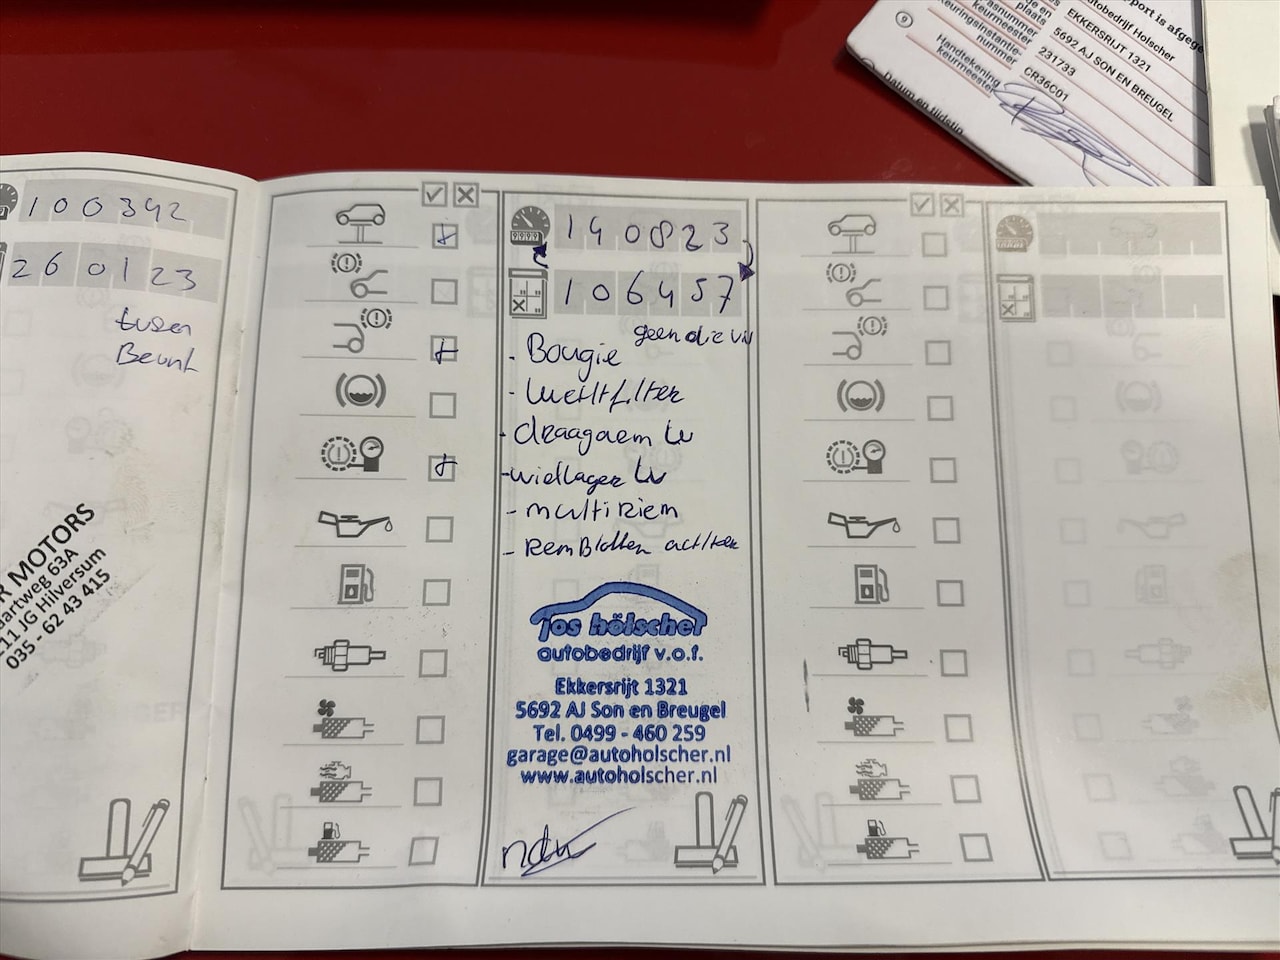 100342
260123
tusen
Beurt
R MOTORS
artweg 63A
211 JG Hilversum
035 - 62 43 415
140823
106457
geen olie
- Bougie
- luchtfilter
- draagarm LV
- wiellager LV
- multiriem
- remblokken achter
jos hölscher
autobedrijf v.o.f.
Ekkersrijt 1321
5692 AJ Son en Breugel
Tel. 0499 - 460 259
garage@autoholscher.nl
www.autoholscher.nl
port is afgege
plaats
Pasnummer
keurmeester
Keuringsinstantie-
nummer
Handtekening
keurmeester
Datum en tijdstip
9
Autobedrijf Holscher
EKKERSRIJT 1321
5692 AJ SON EN BREUGEL
231733
CR36C01